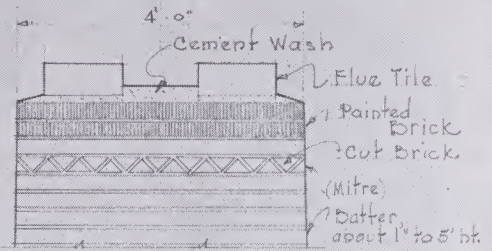 4'·0"
Cement Wash
Flue Tile
Painted
Brick
Cut Brick
(Mitre)
Batter,
about 1" to 5' ht.